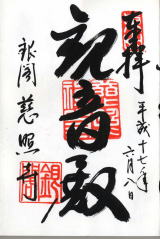 奉拝
平成十七年六月八日
観音殿
銀閣 慈照寺